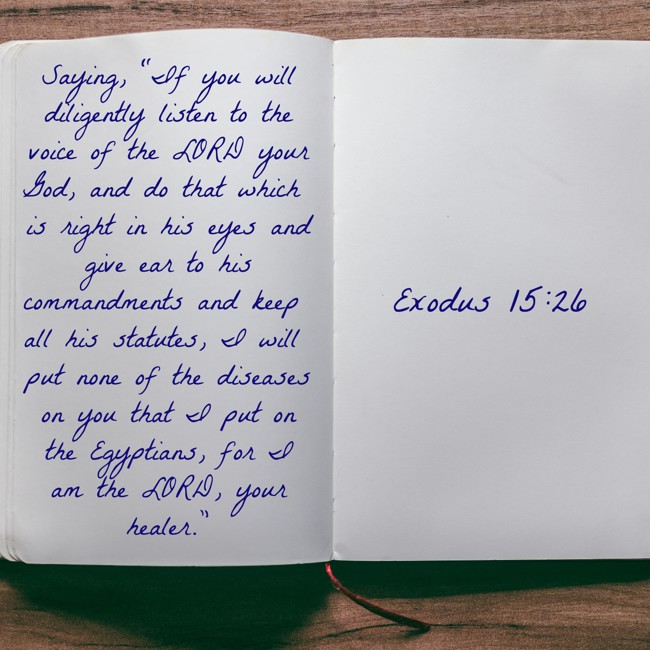 Saying, “If you will
diligently listen to the
voice of the LORD your
God, and do that which
is right in his eyes and
give ear to his
commandments and keep
all his statutes, I will
put none of the diseases
on you that I put on
the Egyptians, for I
am the LORD, your
healer.”
Exodus 15:26